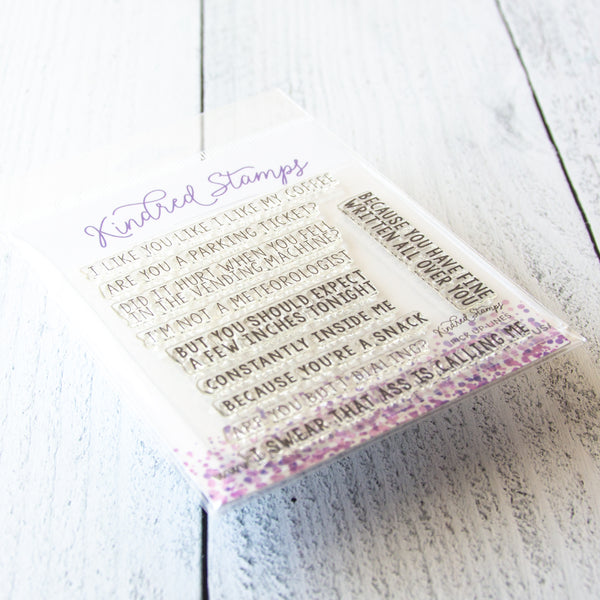 Kindred Stamps
I LIKE YOU LIKE I LIKE MY COFFEE
ARE YOU A PARKING TICKET?
DID IT HURT WHEN YOU FELL
IN THE VENDING MACHINE?
I'M NOT A METEOROLOGIST
BUT YOU SHOULD EXPECT
A FEW INCHES TONIGHT
CONSTANTLY INSIDE ME
BECAUSE YOU'RE A SNACK
ARE YOU BUTT DIALING?
I SWEAR THAT ASS IS CALLING ME
BECAUSE YOU HAVE FINE
WRITTEN ALL OVER YOU
Kindred Stamps
PICK UP LINES